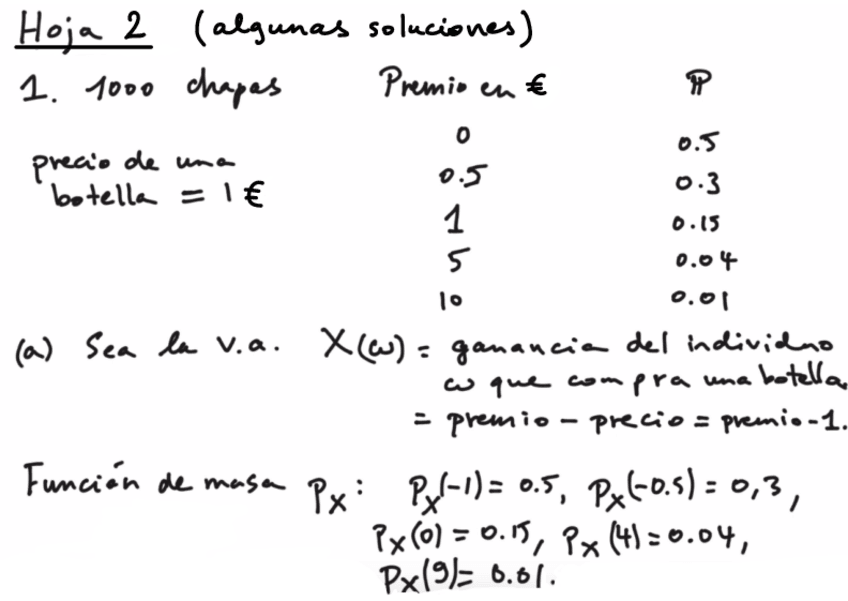 Hoja 2 (algunas soluciones)
1. 1000 chapas Premio en € ℙ
0 0.5
precio de una 0.5 0.3
botella = 1 € 1 0.15
5 0.04
10 0.01
(a) Sea la v.a. X(ω) = ganancia del individuo
ω que compra una botella
= premio - precio = premio - 1.
Función de masa P_X: P_X(-1) = 0.5, P_X(-0.5) = 0,3,
P_X(0) = 0.15, P_X(4) = 0.04,
P_X(9) = 0.01.